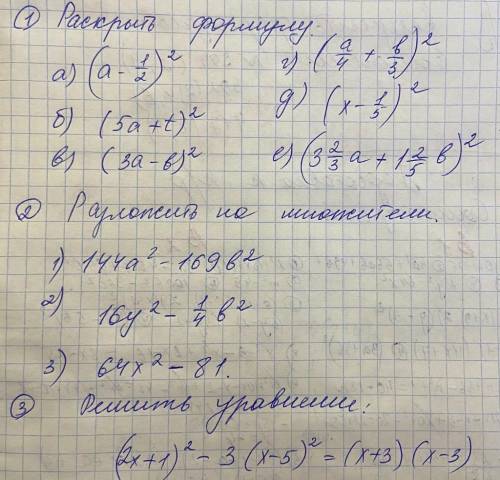 ① Раскрыть формулу:
а) (a - 1/2)²
б) (5a+t)²
в) (3a-b)²
г) (a/4 + b/3)²
д) (x - 1/5)²
е) (3 2/3 a + 1 2/5 b)²
② Разложить на множители.
1) 144a² - 169b²
2) 16y² - 1/4 b²
3) 64x² - 81.
③ Решить уравнение:
(2x+1)² - 3(x-5)² = (x+3)(x-3)